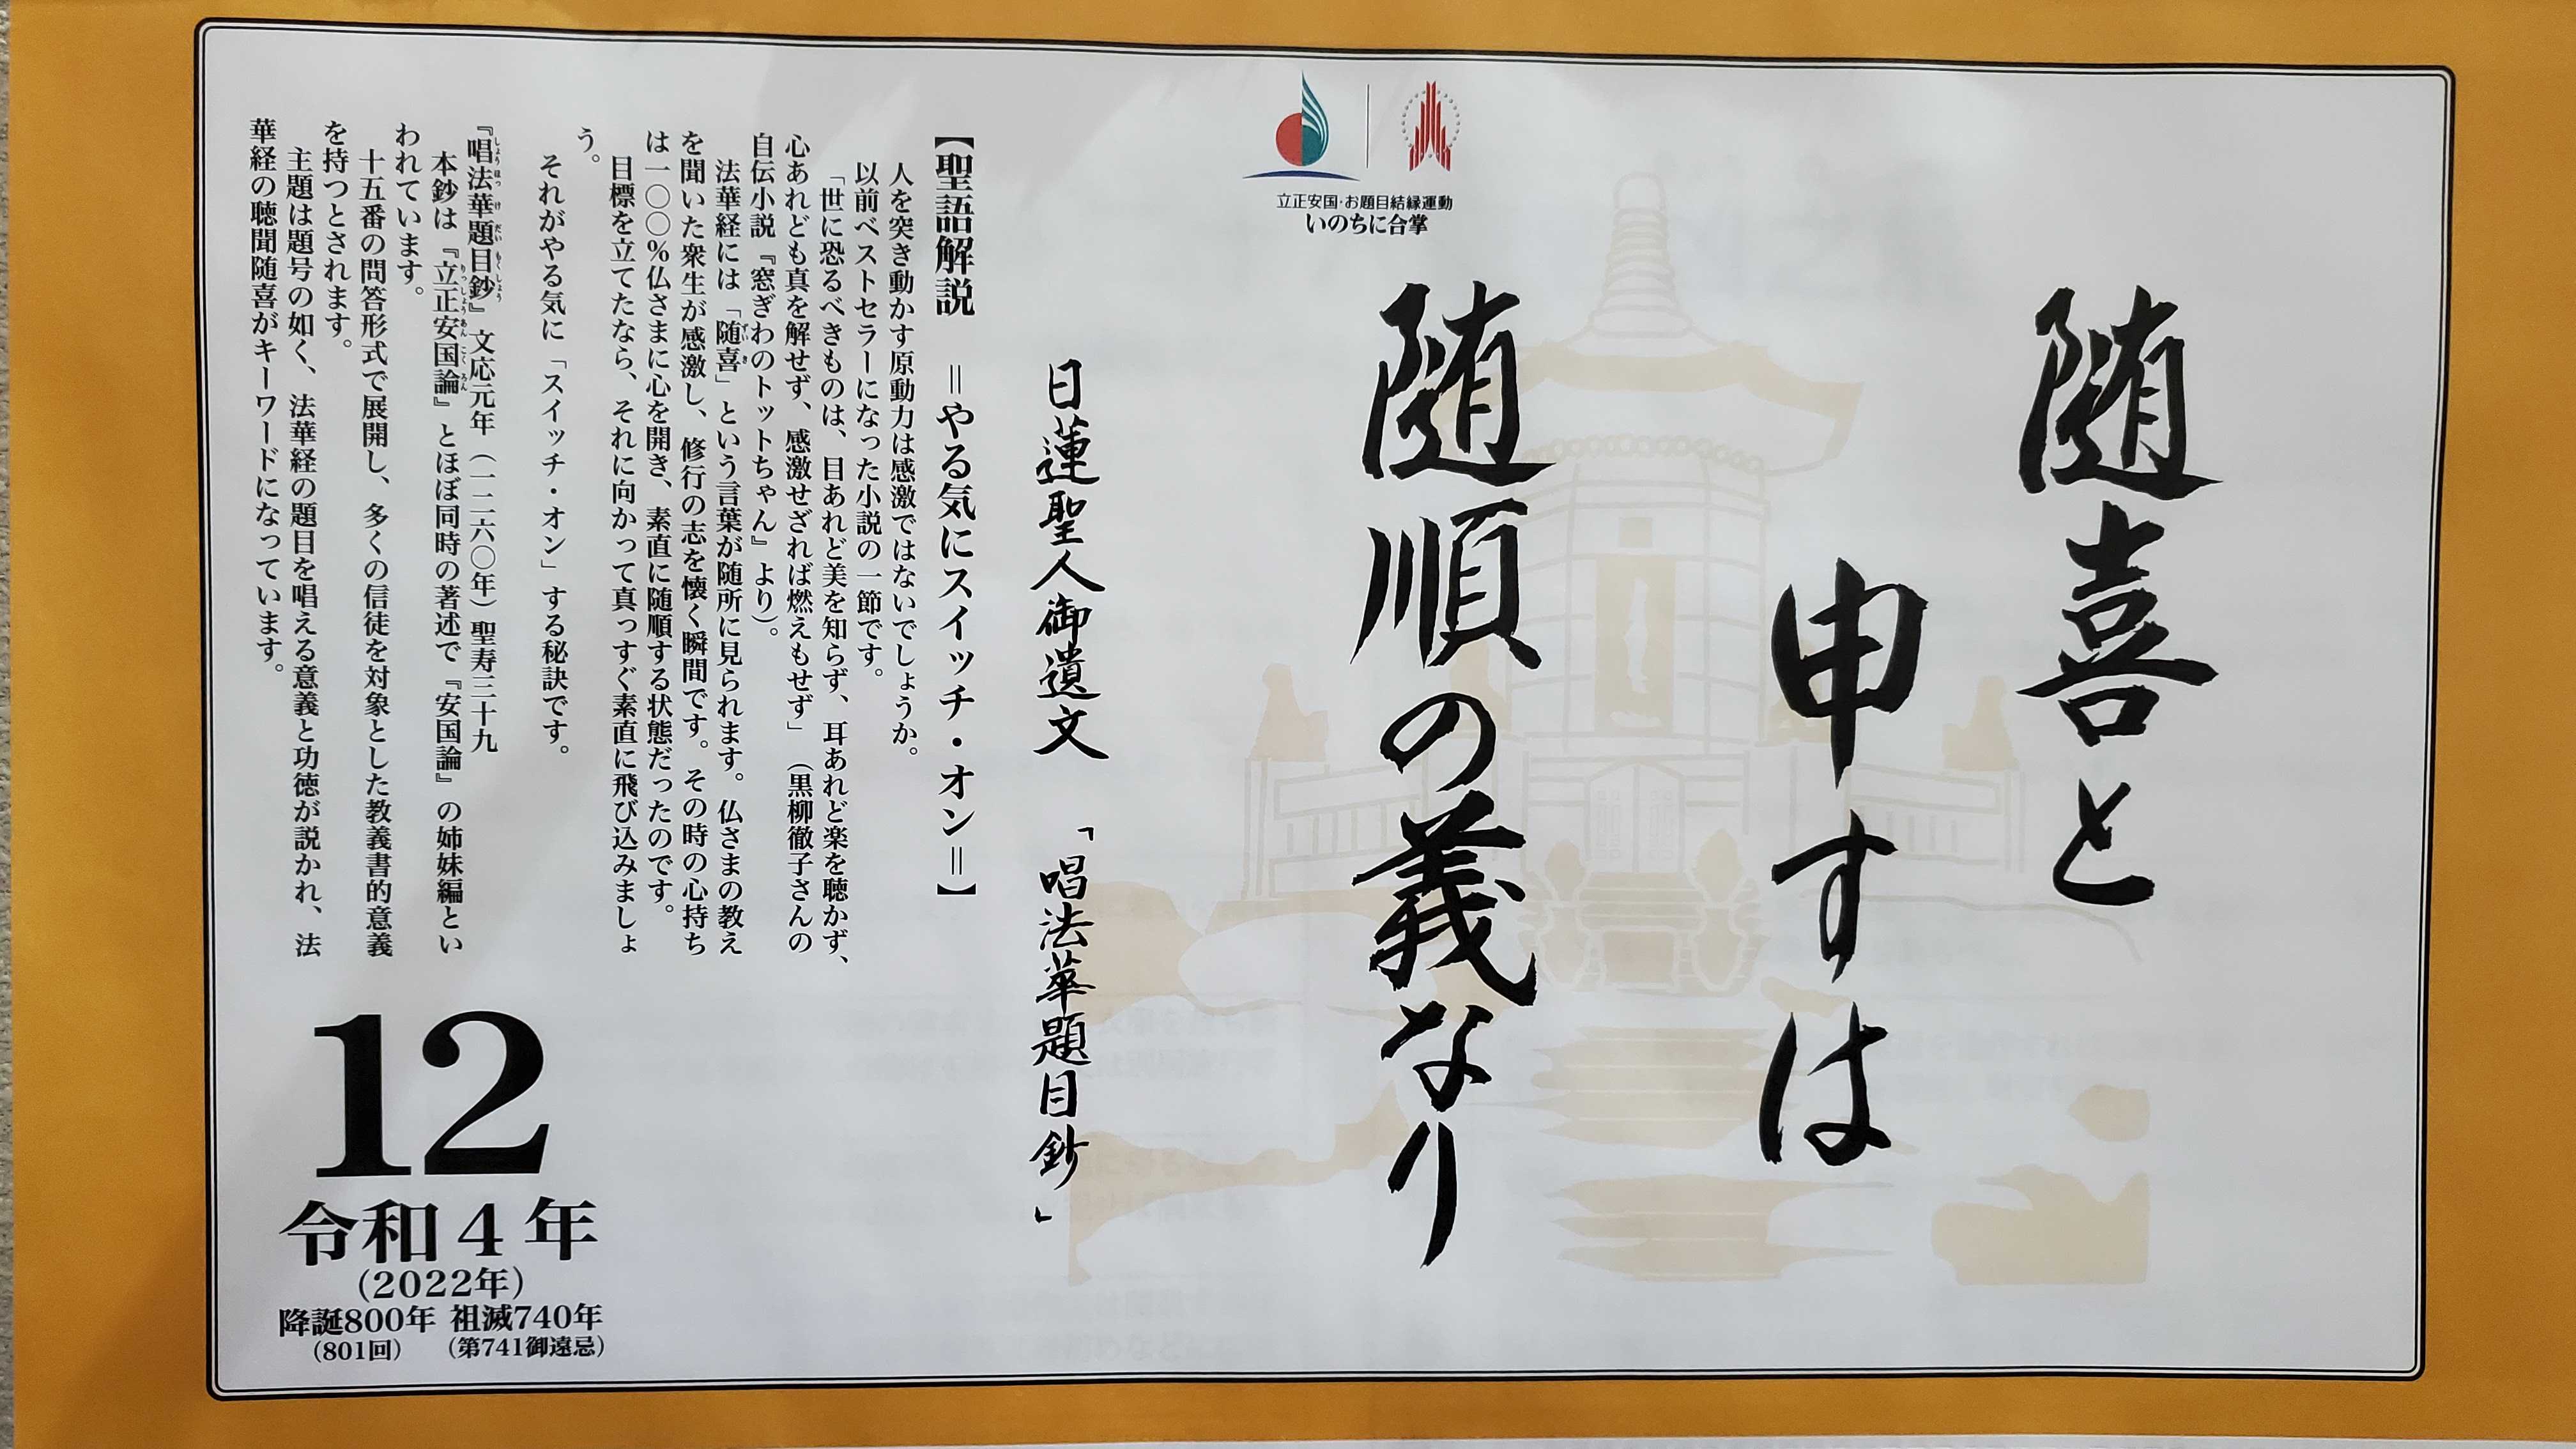 随喜と
申すは
随順の義なり
立正安国・お題目結縁運動
いのちに合掌
日蓮聖人御遺文 「唱法華題目鈔」
【聖語解説 =やる気にスイッチ・オン=】
人を突き動かす原動力は感激ではないでしょうか。
以前ベストセラーになった小説の一節です。
「世に恐るべきものは、目あれど美を知らず、耳あれど楽を聴かず、
心あれども真を解せず、感激せざれば燃えもせず」（黒柳徹子さんの
自伝小説『窓ぎわのトットちゃん』より）。
法華経には「随喜」という言葉が随所に見られます。仏さまの教え
を聞いた衆生が感激し、修行の志を懐く瞬間です。その時の心持ち
は一〇〇％仏さまに心を開き、素直に随順する状態だったのです。
目標を立てたなら、それに向かって真っすぐ素直に飛び込みましょ
う。
それがやる気に「スイッチ・オン」する秘訣です。
『唱法華題目鈔』文応元年（一二六〇年）聖寿三十九
本鈔は『立正安国論』とほぼ同時の著述で『安国論』の姉妹編とい
われています。
十五番の問答形式で展開し、多くの信徒を対象とした教義書的意義
を持つとされます。
主題は題号の如く、法華経の題目を唱える意義と功徳が説かれ、法
華経の聴聞随喜がキーワードになっています。
12
令和4年
（2022年）
降誕800年 祖滅740年
（801回） （第741御遠忌）